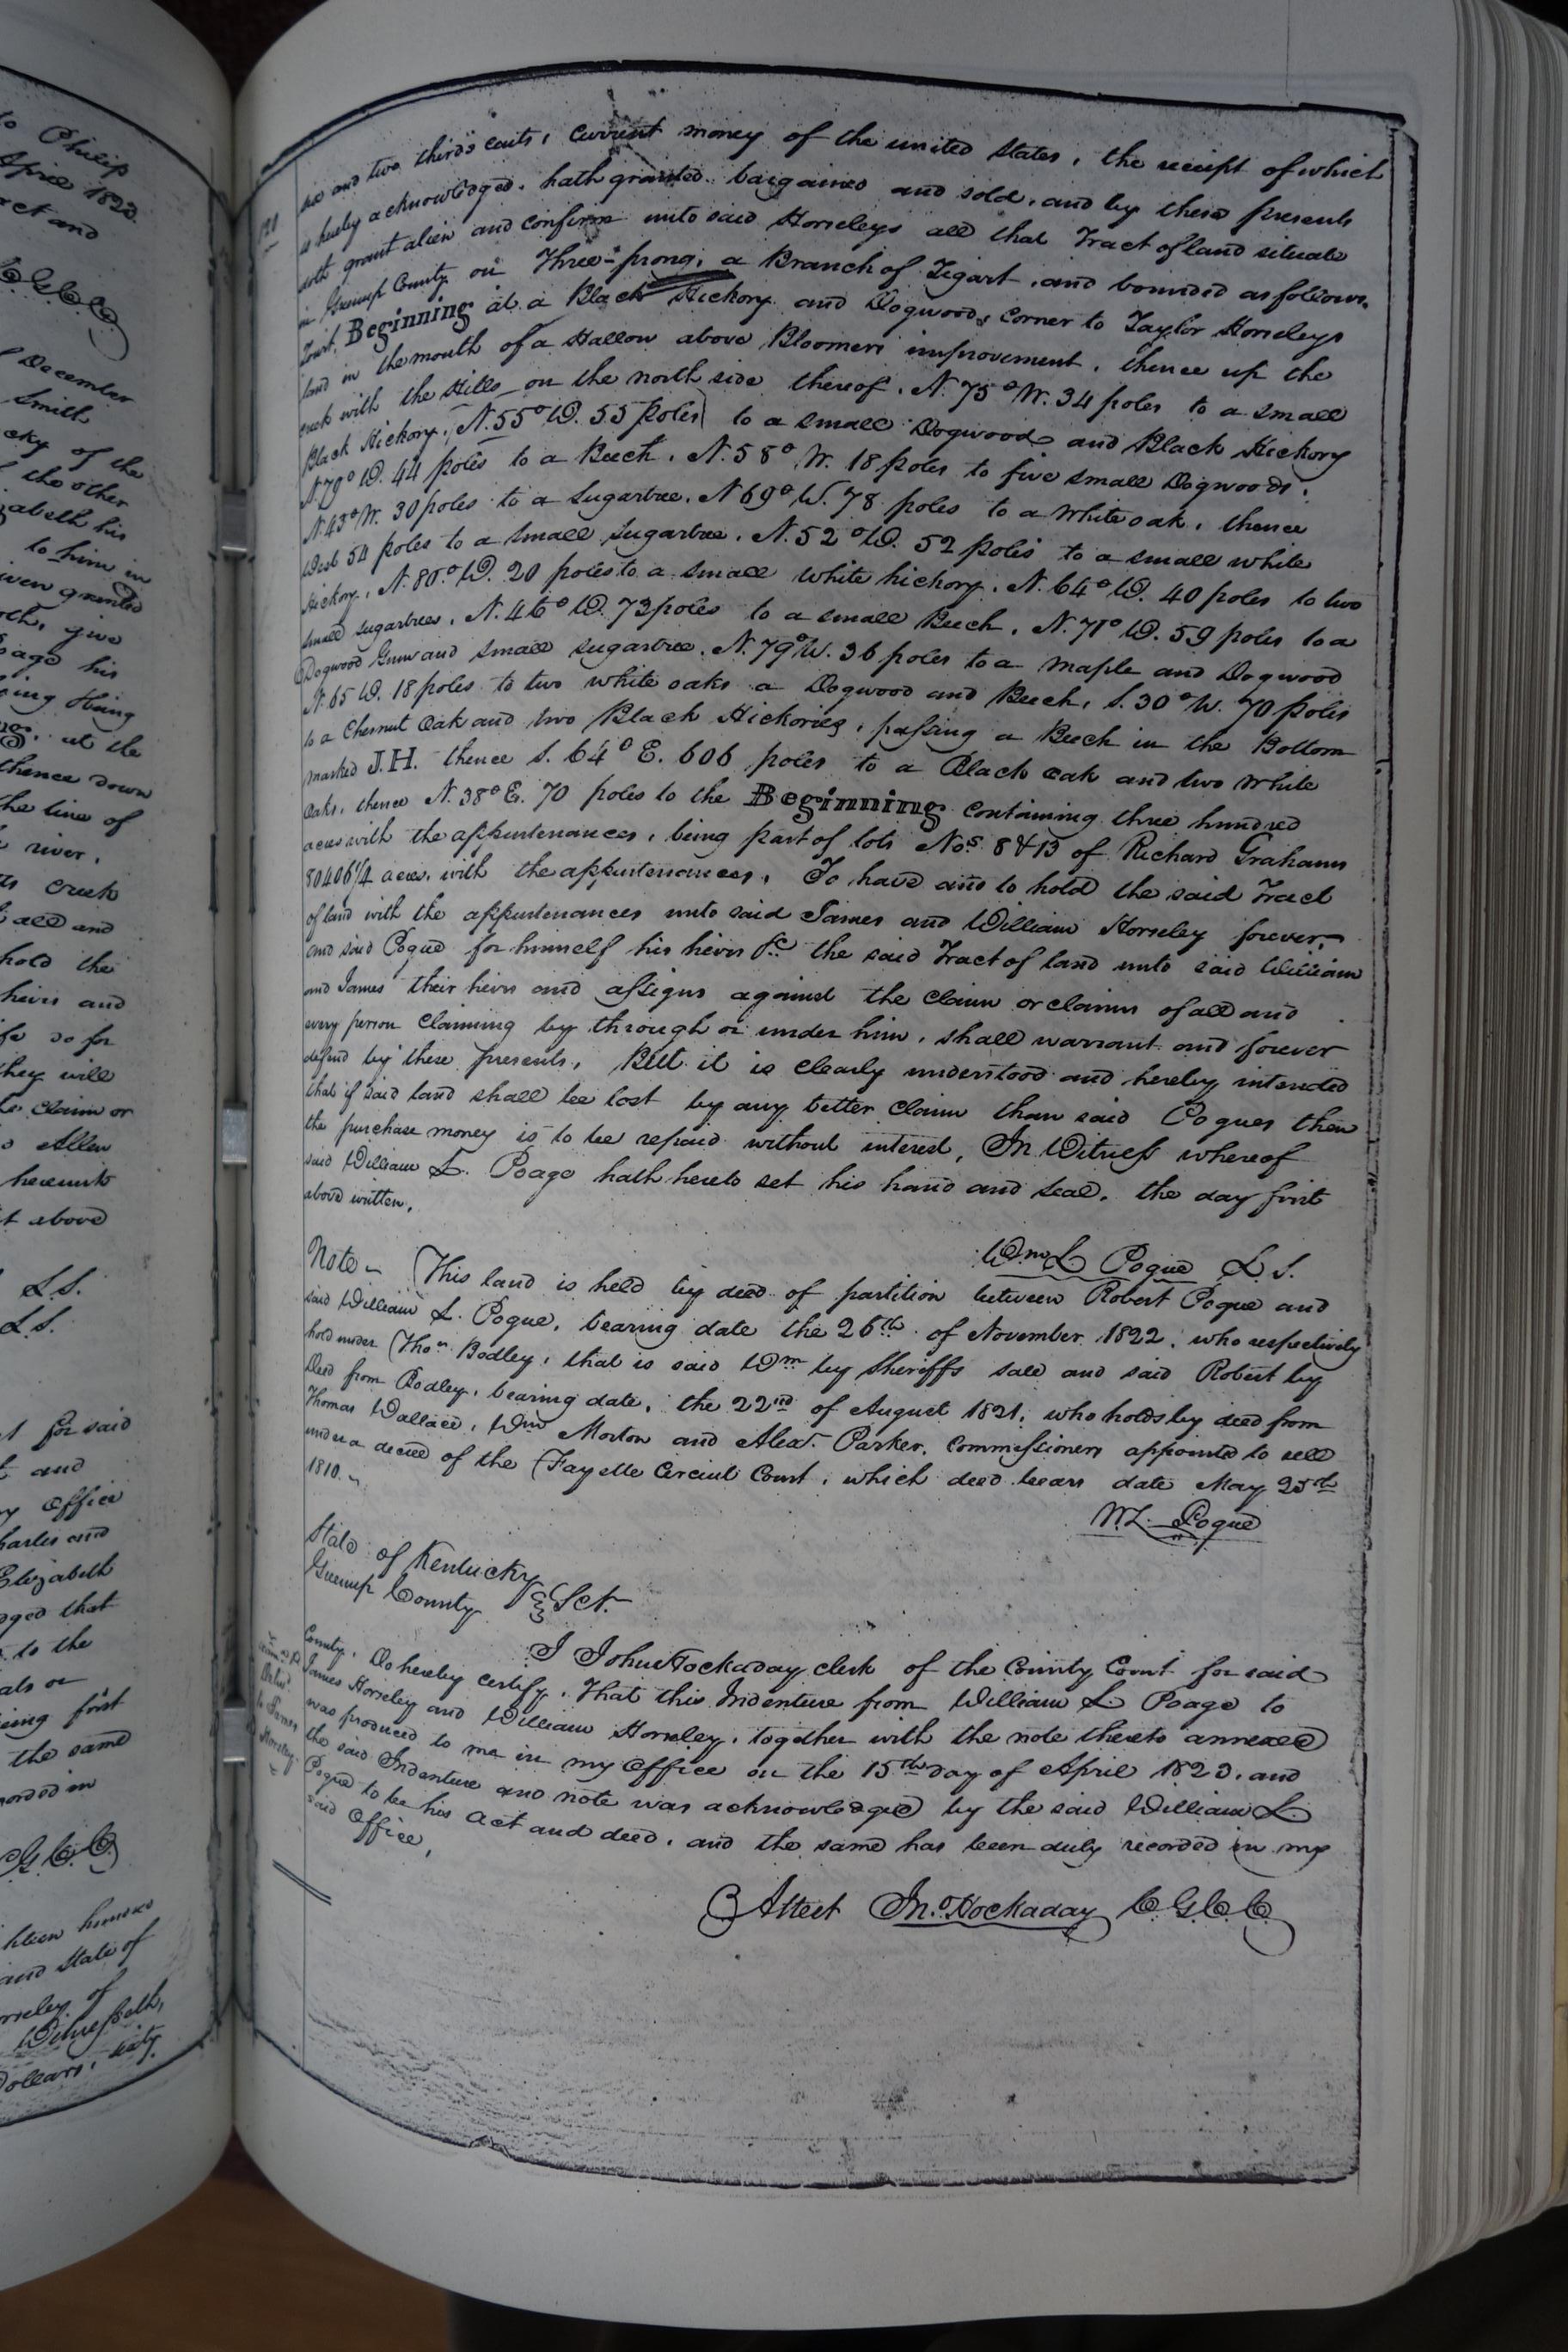 to Philip
April 1823.
act and
C.G.C.C.
December
Smith
cky of the
the other
zabeth his
to him in
iven granted
oth, give
oage his
being
at the
thence down
the line of
river,
creek
all and
hold the
heirs and
so for
they will
claim or
Allen
hereunto
t above
L.S.
L.S.
for said
and
Office
harles and
Elizabeth
dged that
to the
als or
eing first
the same
orded in
G.C.C.
hteen hundred
and State of
orseley of
Witnesseth,
Dollars, sixty
six and two thirds cents, current money of the united States, the receipt of which
is hereby acknowledged, hath granted, bargained and sold, and by these presents
doth grant alien and confirm unto said Horseleys all that Tract of land situate
in Greenup County on Three-prong, a Branch of Tigart, and bounded as follows,
Towit, Beginning at a Black Hickory and Dogwood, corner to Taylor Horseleys
land in the mouth of a Hallow above Bloomers improvement, thence up the
creek with the Hills on the north side thereof, N. 75° W. 34 poles to a small
Black Hickory, N. 55° W. 55 poles to a small Dogwood and Black Hickory
N 79° W. 44 poles to a Beech, N. 58° W. 18 poles to five small Dogwoods,
N 43° W. 30 poles to a Sugartree, N 69° W. 78 poles to a White oak, thence
West 54 poles to a small sugartree, N. 52° W. 52 poles to a small white
Hickory, N. 80° W. 20 poles to a small white hickory, N. 64° W. 40 poles to two
small sugartrees, N. 46° W. 73 poles to a small Beech, N. 71° W. 59 poles to a
Dogwood Gum and small sugartree, N. 79° W. 36 poles to a maple and Dogwood
N. 65 W. 18 poles to two white oaks a Dogwood and Beech, S. 30° W. 70 poles
to a Chesnut Oak and two Black Hickories, passing a Beech in the Bottom
marked J.H. thence S. 64° E. 606 poles to a Black oak and two White
Oaks, thence N. 38° E. 70 poles to the Beginning containing three hundred
acres with the appurtenances, being part of lots Nos. 8 & 13 of Richard Grahams
80406 1/4 acres, with the appurtenances, To have and to hold the said Tract
of land with the appurtenances unto said James and William Horseley forever,
and said Pogue for himself his heirs &c the said Tract of land unto said William
and James their heirs and assigns against the claim or claims of all and
every person claiming by through or under him, shall warrant and forever
defend by these presents, But it is clearly understood and hereby intended
that if said land shall be lost by any better claim than said Pogues then
the purchase money is to be repaid without interest, In Witness whereof
said William L. Poage hath hereto set his hand and seal, the day first
above written,
Wm L Pogue L.S.
Note - This land is held by deed of partition between Robert Pogue and
said William L. Pogue, bearing date the 26th of November 1822, who respectively
hold under Thos. Bodley, that is said Wm by Sheriffs sale and said Robert by
Deed from Bodley, bearing date, the 22nd of August 1821, who holds by deed from
Thomas Wallace, Wm Morton and Alexr. Parker, Commissioners appointed to sell
under a decree of the Fayette Circuit Court, which deed bears date May 25th
1810.
W.L. Pogue
State of Kentucky
Greenup County } Sct.
I John Hockaday clerk of the County Court for said
County, Do hereby certify, That this Indenture from William L Poage to
James Horseley and William Horseley, together with the note thereto annexed
was produced to me in my Office on the 15th day of April 1823, and
the said Indenture and note was acknowledged by the said William L.
Pogue to be his act and deed, and the same has been duly recorded in my
said Office,
to James
Horseley
Attest Jno. Hockaday C.G.C.C.